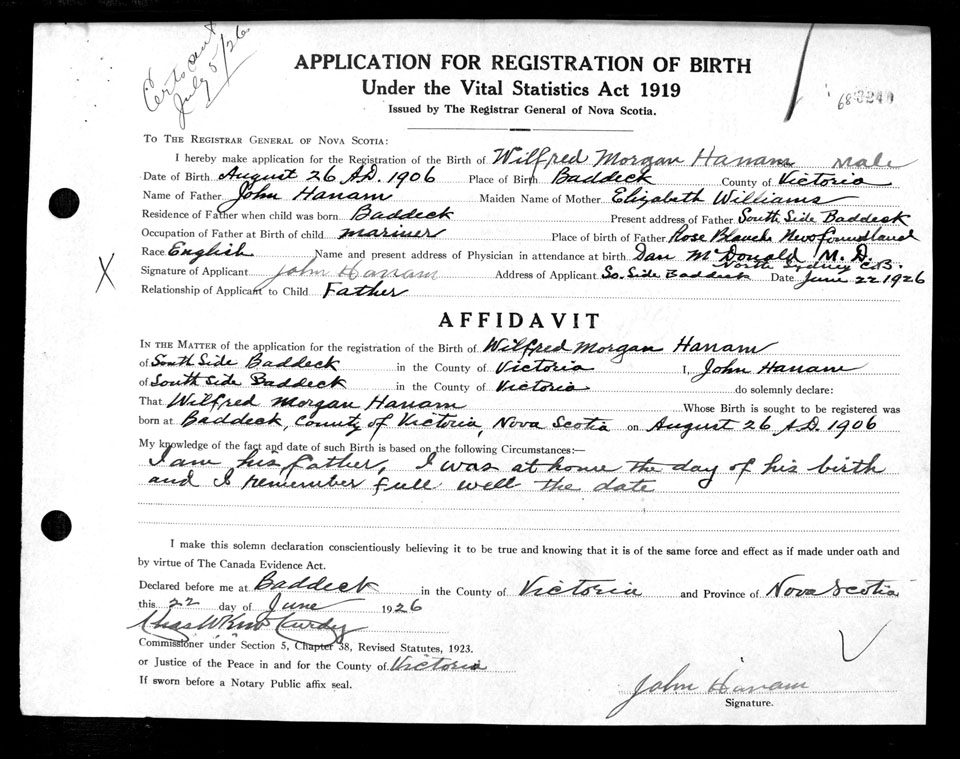 Certs out
July 5/26
APPLICATION FOR REGISTRATION OF BIRTH
Under the Vital Statistics Act 1919
Issued by The Registrar General of Nova Scotia.
TO THE REGISTRAR GENERAL OF NOVA SCOTIA:
I hereby make application for the Registration of the Birth of Wilfred Morgan Hanam Male
Date of Birth August 26 A.D. 1906 Place of Birth Baddeck County of Victoria
Name of Father John Hanam Maiden Name of Mother Elizabeth Williams
Residence of Father when child was born Baddeck Present address of Father South Side Baddeck
Occupation of Father at Birth of child mariner Place of birth of Father Rose Blanche Newfoundland
Race English Name and present address of Physician in attendance at birth Dan McDonald M.D.
North Sydney C.B.
Signature of Applicant John Hanam Address of Applicant So. Side Baddeck Date June 22 1926
Relationship of Applicant to Child Father
AFFIDAVIT
IN THE MATTER of the application for the registration of the Birth of Wilfred Morgan Hanam
of South Side Baddeck in the County of Victoria I, John Hanam
of South Side Baddeck in the County of Victoria do solemnly declare:
That Wilfred Morgan Hanam Whose Birth is sought to be registered was
born at Baddeck, County of Victoria, Nova Scotia on August 26 A.D. 1906
My knowledge of the fact and date of such Birth is based on the following Circumstances:—
I am his father, I was at home the day of his birth
and I remember full well the date
I make this solemn declaration conscientiously believing it to be true and knowing that it is of the same force and effect as if made under oath and
by virtue of The Canada Evidence Act.
Declared before me at Baddeck in the County of Victoria and Province of Nova Scotia
this 22 day of June 1926
Commissioner under Section 5, Chapter 38, Revised Statutes, 1923.
or Justice of the Peace in and for the County of Victoria
If sworn before a Notary Public affix seal.
John Hanam
Signature.